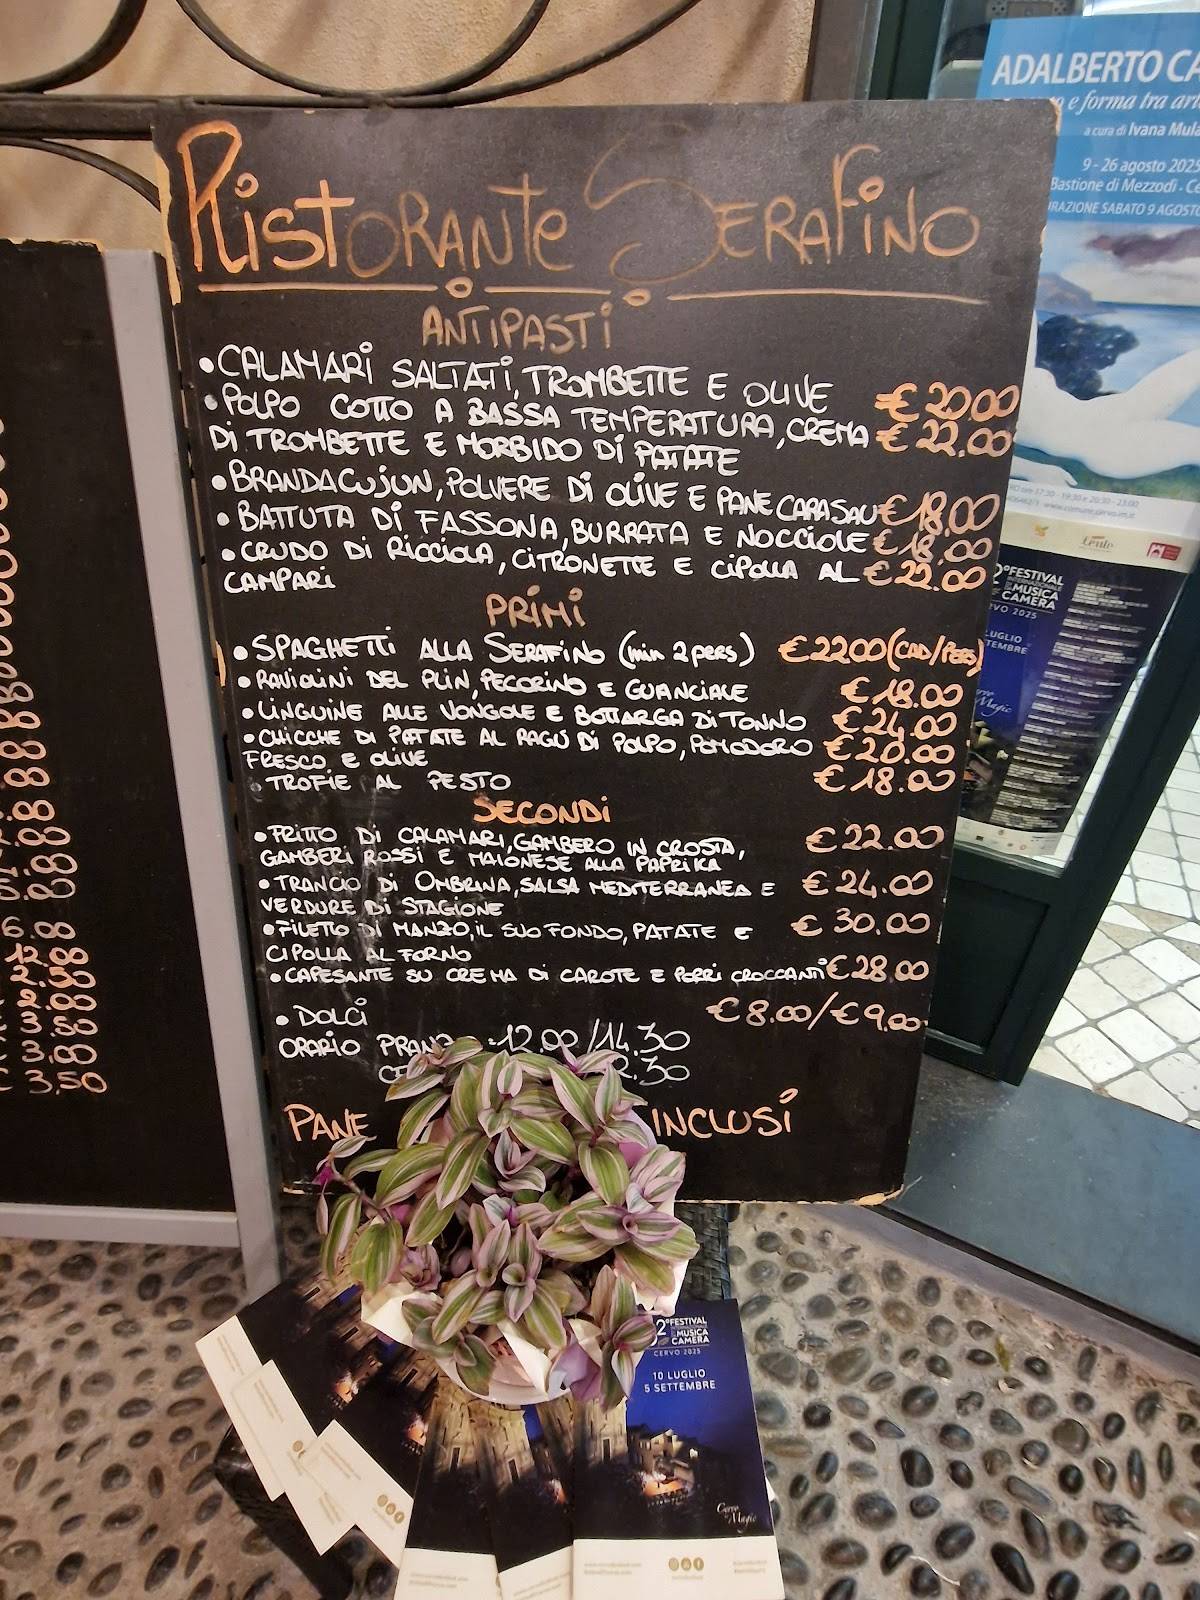 RISTORANTE SERAFINO
ANTIPASTI
• CALAMARI SALTATI, TROMBETTE E OLIVE € 20.00
• POLPO COTTO A BASSA TEMPERATURA, CREMA € 22.00
DI TROMBETTE E MORBIDO DI PATATE
• BRANDACUJUN, POLVERE DI OLIVE E PANE CARASAU € 18.00
• BATTUTA DI FASSONA, BURRATA E NOCCIOLE € 18.00
• CRUDO DI RICCIOLA, CITRONETTE E CIPOLLA AL € 22.00
CAMPARI
PRIMI
• SPAGHETTI ALLA SERAFINO (min 2 pers) € 22.00 (CAD/PERS)
• RAVIOLINI DEL PLIN, PECORINO E GUANCIALE € 18.00
• LINGUINE ALLE VONGOLE E BOTTARGA DI TONNO € 24.00
• CHICCHE DI PATATE AL RAGÙ DI POLPO, POMODORO € 20.00
FRESCO E OLIVE
• TROFIE AL PESTO € 18.00
SECONDI
• FRITTO DI CALAMARI, GAMBERO IN CROSTA, € 22.00
GAMBERI ROSSI E MAIONESE ALLA PAPRIKA
• TRANCIO DI OMBRINA, SALSA MEDITERRANEA E € 24.00
VERDURE DI STAGIONE
• FILETTO DI MANZO, IL SUO FONDO, PATATE E € 30.00
CIPOLLA AL FORNO
• CAPESANTE SU CREMA DI CAROTE E PORRI CROCCANTI € 28.00
• DOLCI € 8.00/€ 9.00
ORARIO PRANZO 12.00/14.30
2.30
PANE INCLUSI
6.00
12.00
2.50
2.00
3,50
3,00
3,50
ADALBERTO CA
e forma tra ar
a cura di Ivana Mula
9 - 26 agosto 2025
Bastione di Mezzodì - Ce
URAZIONE SABATO 9 AGOSTO
FESTIVAL
INTERNAZIONALE
DI MUSICA
DA CAMERA
CERVO 2025
LUGLIO
TEMBRE
Cervo
Magic
2° FESTIVAL
MUSICA
CAMERA
CERVO 2025
10 LUGLIO
5 SETTEMBRE
Cervo
Magic